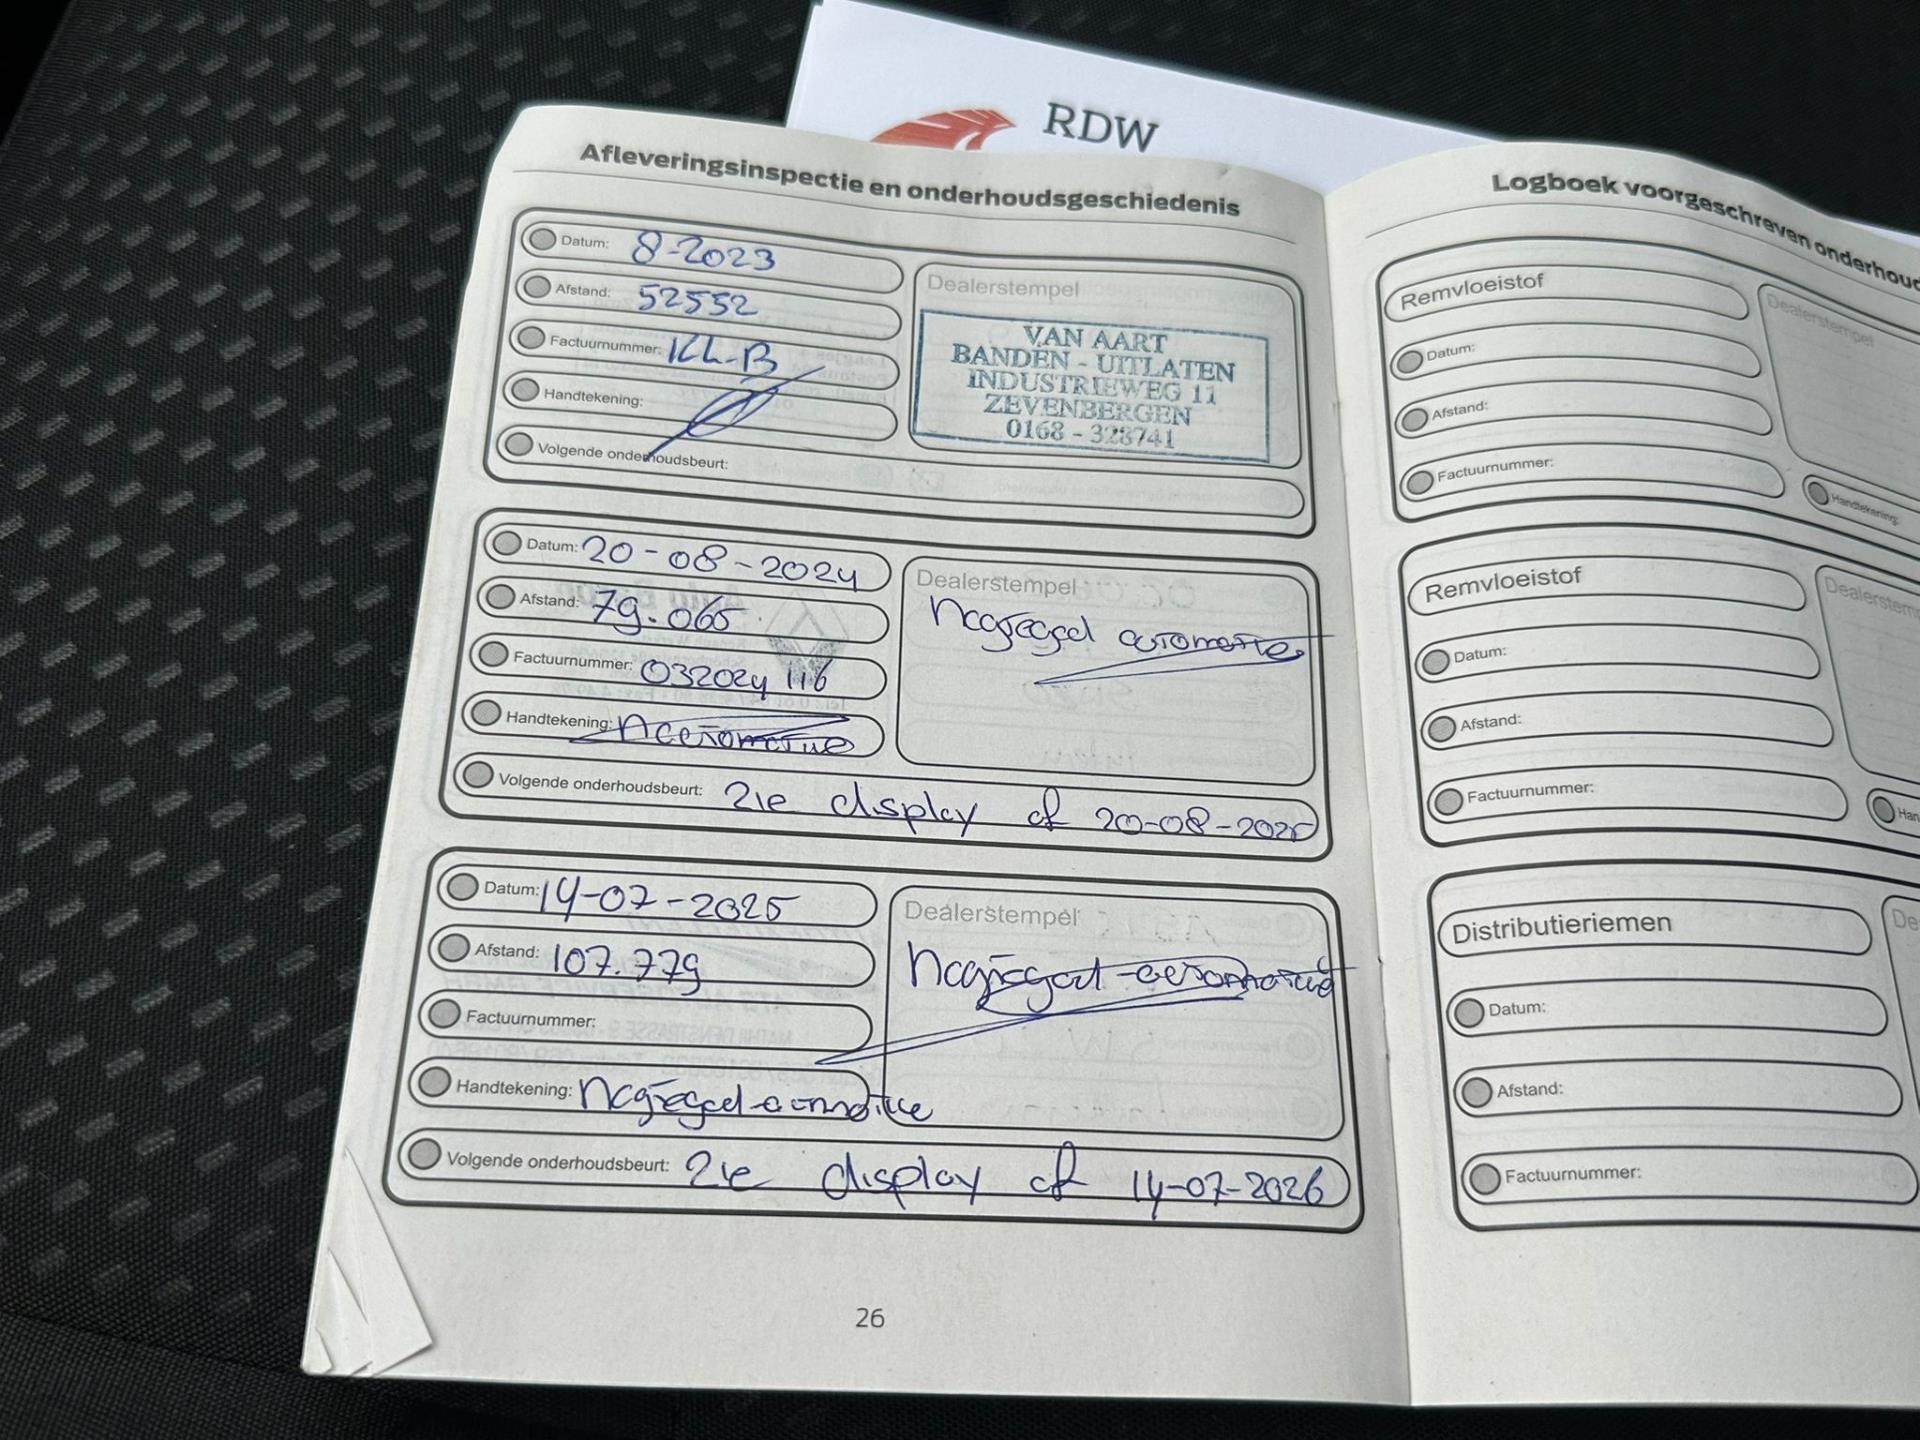 RDW
Afleveringsinspectie en onderhoudsgeschiedenis
Datum: 8-2023
Afstand: 52552
Factuurnummer: KL-B
Handtekening:
Volgende onderhoudsbeurt:
Dealerstempel
VAN AART
BANDEN - UITLATEN
INDUSTRIEWEG 11
ZEVENBERGEN
0168 - 328741
Datum: 20-08-2024
Afstand: 79.065
Factuurnummer: 032024116
Handtekening:
Volgende onderhoudsbeurt: zie display of 20-08-2025
Dealerstempel
Datum: 14-07-2025
Afstand: 107.779
Factuurnummer:
Handtekening:
Volgende onderhoudsbeurt: zie display of 14-07-2026
Dealerstempel
26
Logboek voorgeschreven
Remvloeistof
Datum:
Afstand:
Factuurnummer:
Dealerstempel
Handtekening:
Remvloeistof
Datum:
Afstand:
Factuurnummer:
Distributieriemen
Datum:
Afstand:
Factuurnummer: